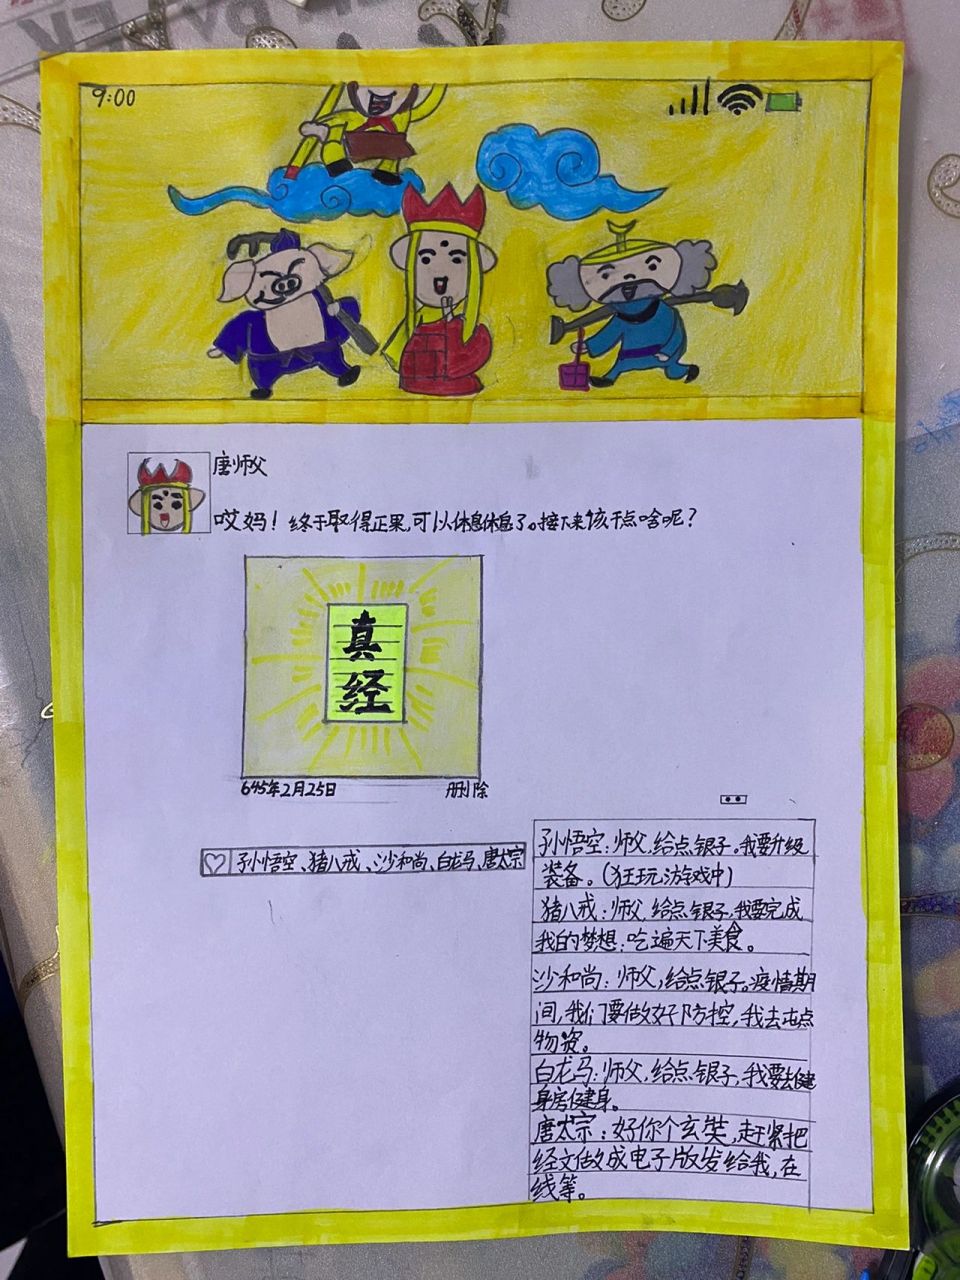 9:00
唐师父
哎妈！终于取得正果,可以休息休息了。接下来该干点啥呢？
真
经
645年2月25日 删除
孙悟空、猪八戒、沙和尚、白龙马、唐太宗
孙悟空：师父,给点银子。我要升级
装备。(狂玩游戏中)
猪八戒：师父,给点银子,我要完成
我的梦想：吃遍天下美食。
沙和尚：师父,给点银子。疫情期
间,我们要做好防控,我去屯点
物资。
白龙马：师父,给点银子,我要去健
身房健身。
唐太宗：好你个玄奘,赶紧把
经文做成电子版发给我,在
线等。